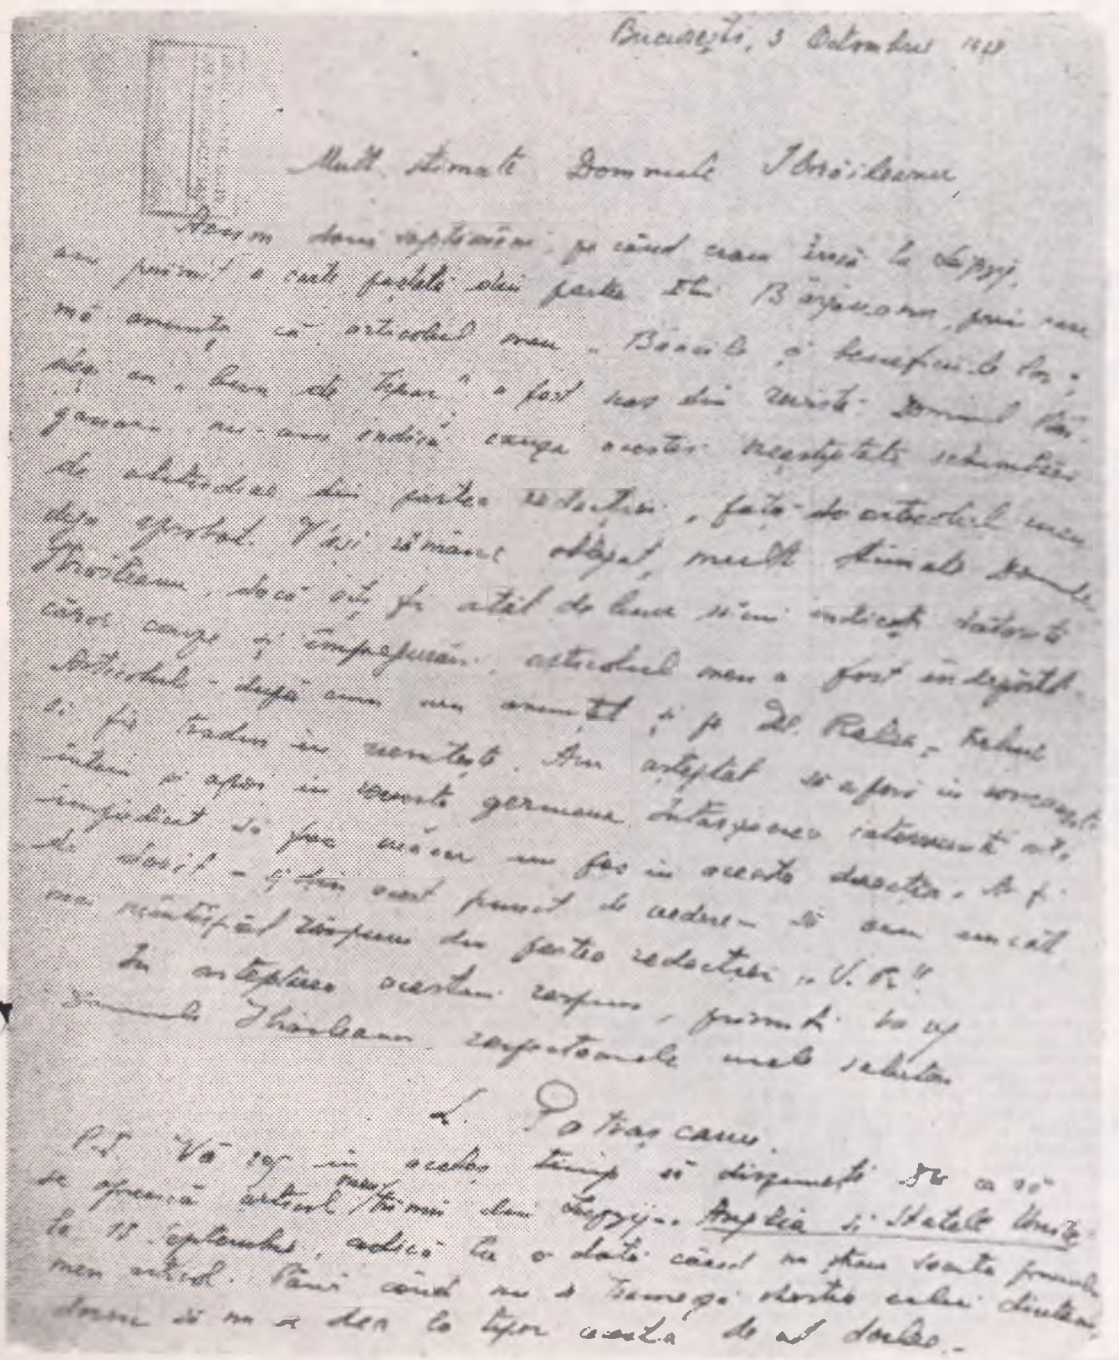 București, 3 Octombrie
Mult stimate Domnule Ibrăileanu
Acum două săptămâni, pe când eram încă la Leipzig,
am primit o carte poștală din partea Dlui Bârgăuanu, prin care
mă anunța că articolul meu „Băncile și beneficiile lor",
deși cu „bun de tipar" a fost scos din revistă. Domnul
nu-mi indică cauza acestei neașteptate schimbări
de atitudine din partea redacției, față de articolul meu
deja aprobat. V-ași rămâne obligat, mult stimate Domnule
Ibrăileanu, dacă ați fi atât de bun să-mi indicați datorită
căror cauze și împrejurări, articolul meu a fost îndepărtat.
Articolul - după cum am anunțat și pe Dl. Ralea - trebuie
să fie tradus în nemțește. Am așteptat să apară în românește
întâiu și apoi în revista germană. Întârzierea intervenită
împiedicat să fac măcar un pas în această direcție. Ar fi
de dorit - și din acest punct de vedere - să am un cât
mai neîntârziat răspuns din partea redacției „V. R."
În așteptarea acestui răspuns, primiți vă rog
Domnule Ibrăileanu respectoasele mele salutări
L. Pătrășcanu.
P.S. Vă rog în acelaș timp să dispuneți ca să
se oprească articolul meu trimis din Leipzig - Anglia și Statele Unite
la 18 Septembrie, adică la o dată când nu știam soarta
meu articol. Până când nu
doresc să nu se dea la tipar acesta de al doilea.-